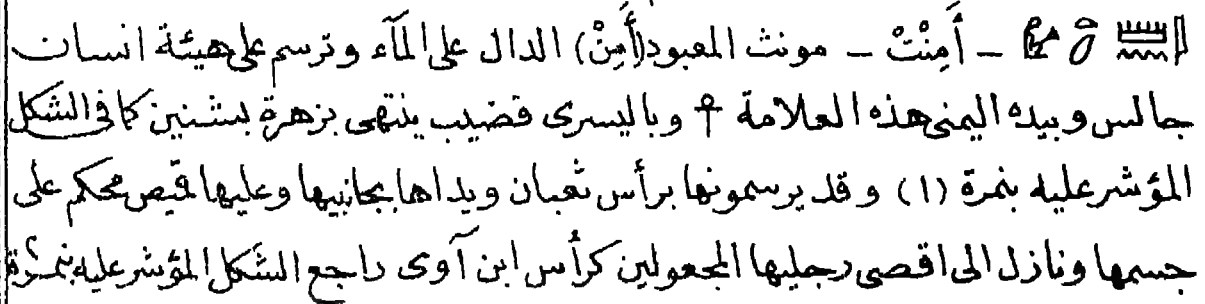 𓇋𓏠𓈖𓏏𓆇𓁐 ــ أَمِنْتْ ــ مونث المعبود (أَمِنْ) الدال على المآء وترسم على هيئة انسان
جالس وبيده اليمنى هذه العلامة ☥ وباليسرى قضيب ينتهى بزهرة بشنين كما فى الشكل
المؤشر عليه بنمرة (١) وقد يرسمونها برأس ثعبان ويداها بجانبيها وعليها قميص محكم على
جسمها ونازل الى اقصى رجليها المجعولين كرأس ابن آوى راجع الشكل المؤشر عليه بنمرة